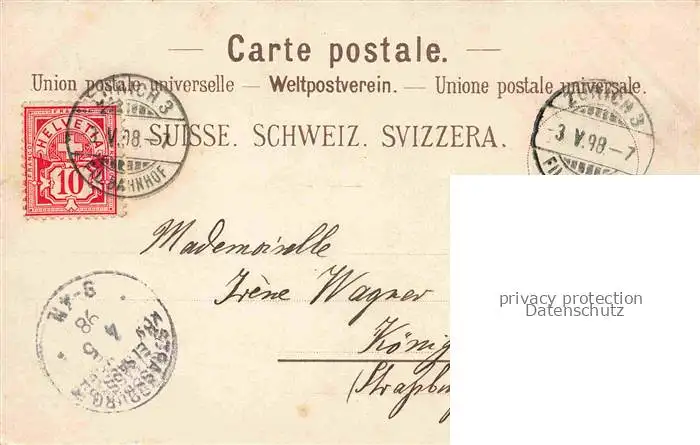 Carte postale.
Union postale universelle — Weltpostverein. — Unione postale universale.
SUISSE. SCHWEIZ. SVIZZERA.
HELVETIA
10
ZÜRICH 3
V.98.–7
BAHNHOF
ZÜRICH 3
3 V.98.–7
FIL
Mademoiselle
Irène Wagner
König
(Straßbu
STRASSBURG
4 5
98
8-9 N
privacy protection
Datenschutz